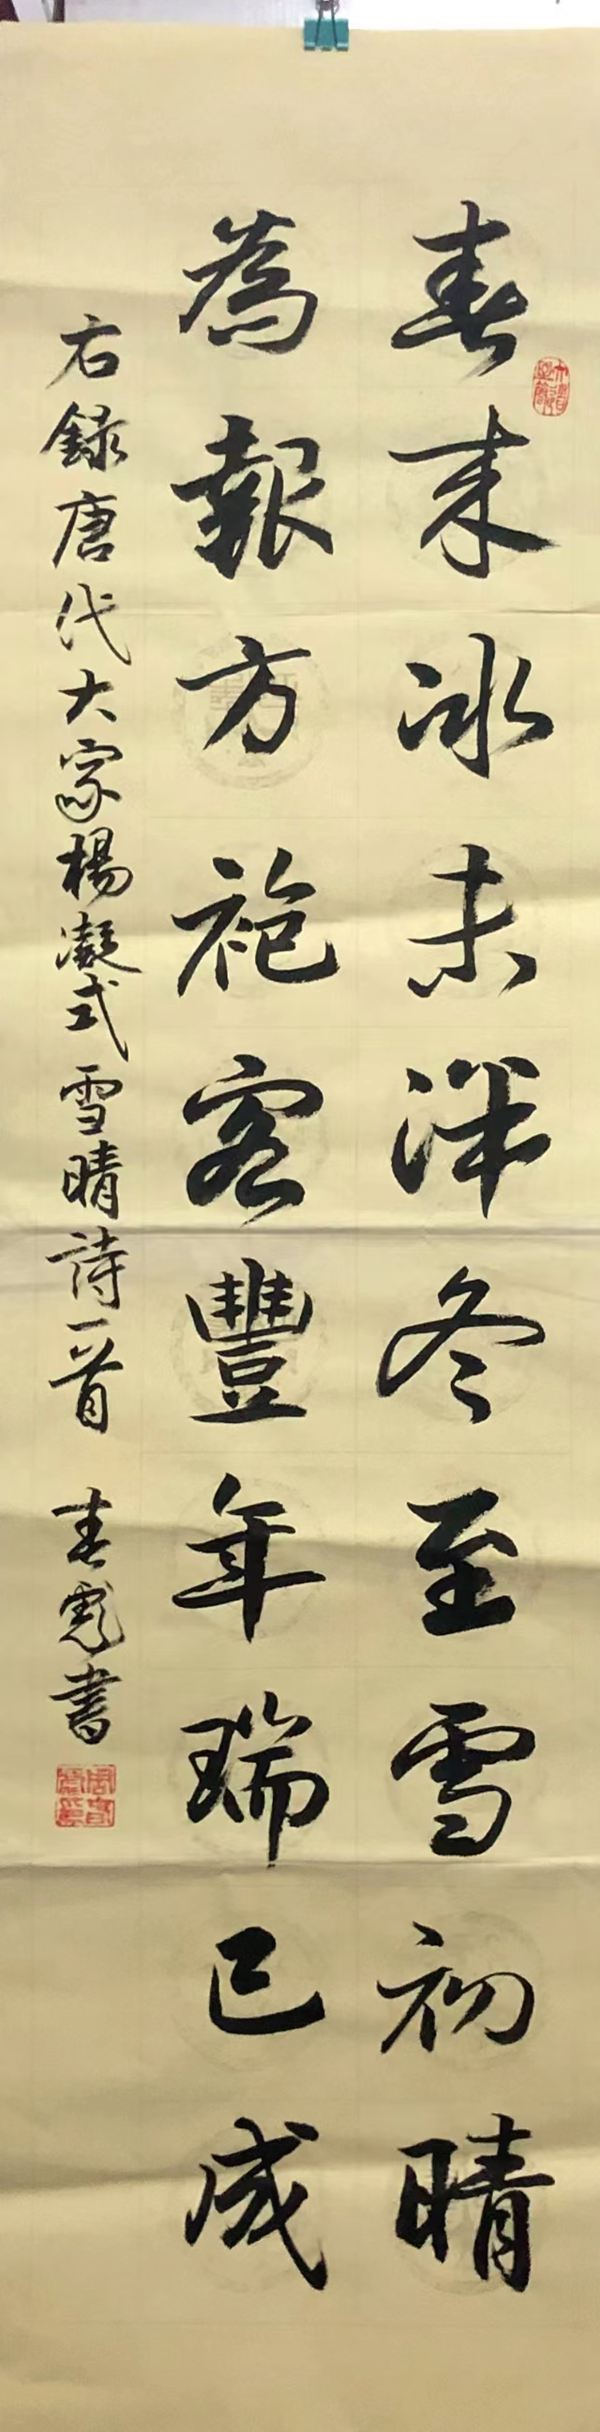 春來冰未泮冬至雪初晴
為報方袍客豐年瑞已成
右録唐代大家楊凝式雪晴詩一首 春彪書